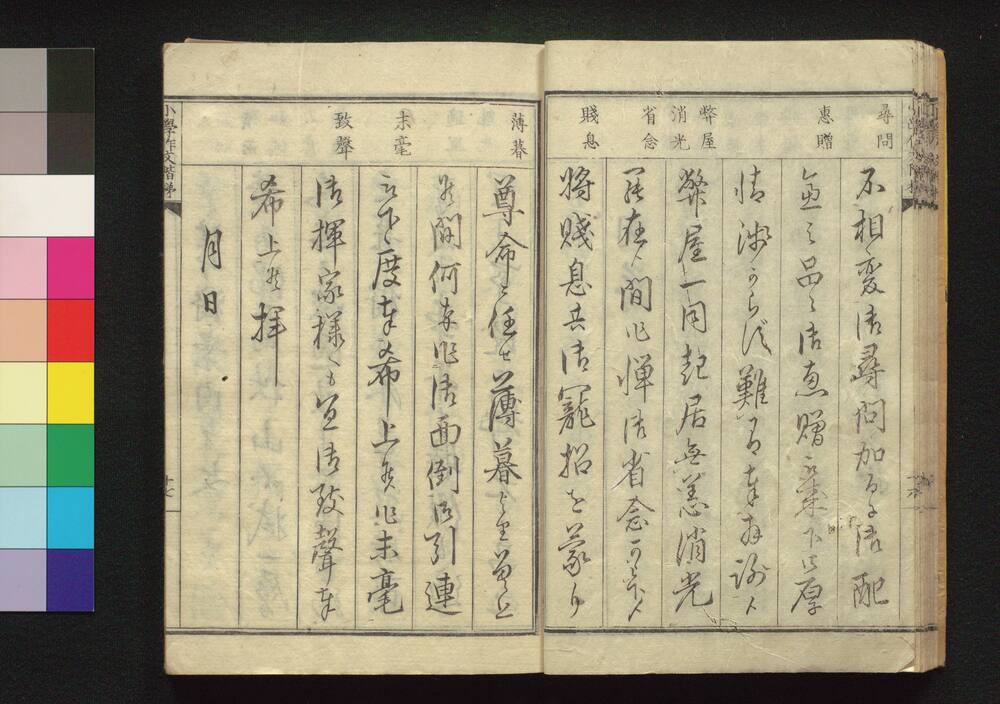 尋問
惠贈
弊屋
消光
省念
賤息
不相変御尋問加るに御配
意之品々御恵贈被下御厚
情渉からず難有奉存謝候
弊屋一同起居無恙消光
罷在候間乍憚御省念可被下候
将賤息共御寵招を蒙り
薄暮
末毫
致聲
尊命に任せ薄暮より差上
候間何卒乍御面倒御引連
被下度奉希上候乍末毫
御揮家様へも宜御致聲奉
希上候拝
月日
小學作文階梯
十七